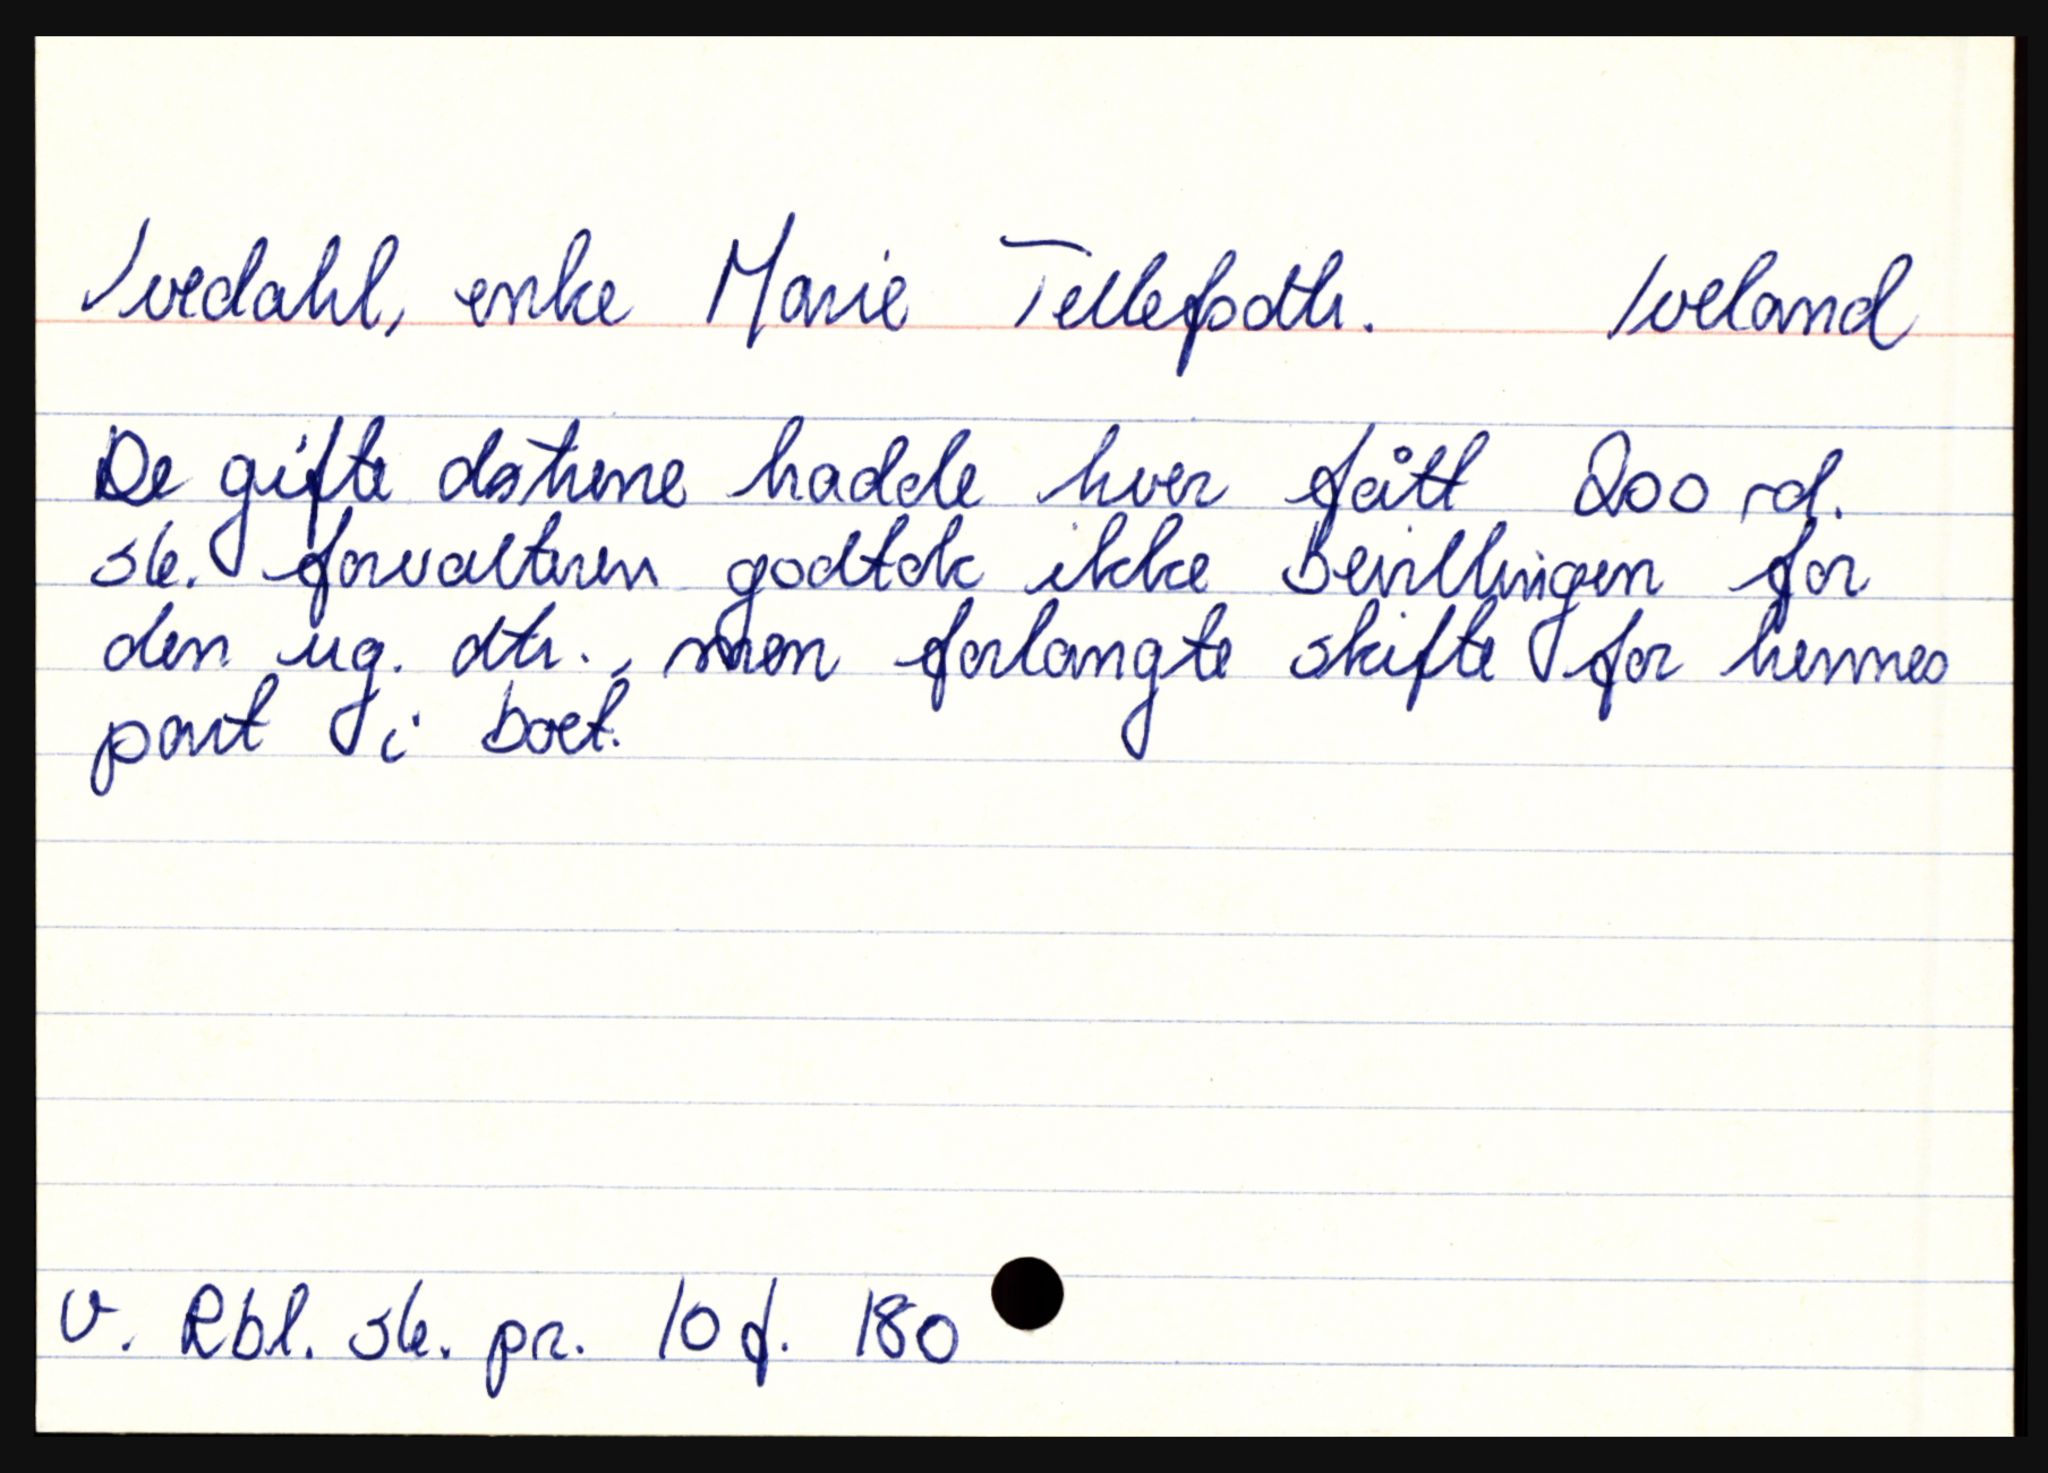 Ivedahl, enke Marie Tellefsdtr. Iveland
De gifte døtrene hadde hver fått 200 rd.
sk. forvalteren godtok ikke bevillingen for
den ug. dtr., men forlangte skifte for hennes
part i boet.
V. Rbl. sk. pr. 10 f. 180